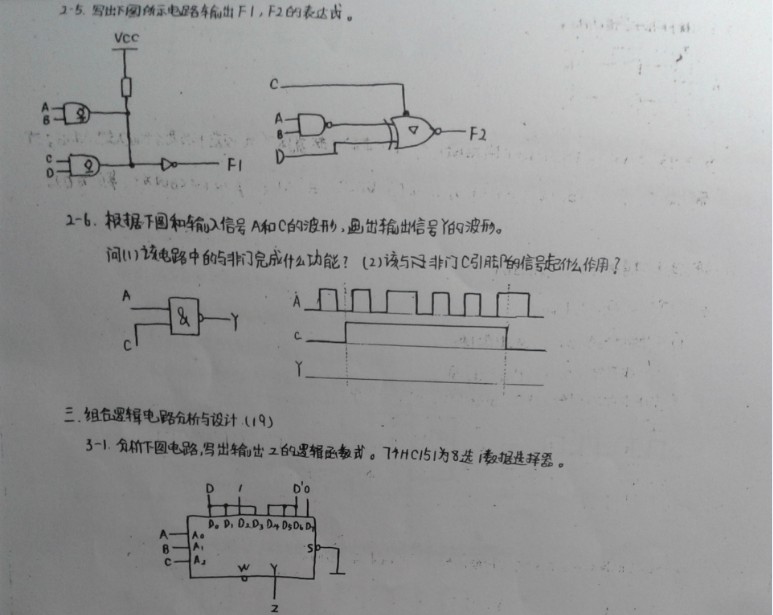 2-5. 写出下图所示电路输出F1,F2的表达式。
VCC
A
B
&
C
D
&
F1
C
A
B
D
▽
F2
2-6. 根据下图和输入信号A和C的波形,画出输出信号Y的波形。
问(1)该电路中的与非门完成什么功能?(2)该与非门C引脚的信号起什么作用?
A
C
&
Y
A
C
Y
三.组合逻辑电路分析与设计.(19)
3-1. 分析下图电路,写出输出Z的逻辑函数式。74HC151为8选1数据选择器。
D 1 D' 0
D0 D1 D2 D3 D4 D5 D6 D7
A A0
B A1
C A2
S
W Y
Z